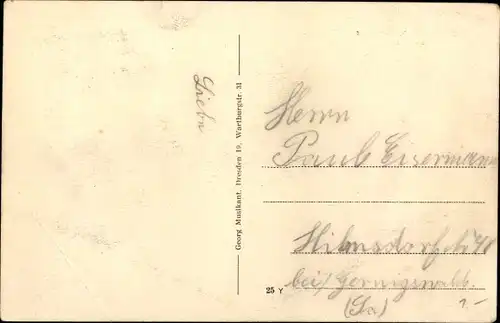 Liebn
Georg Musikant, Dresden 19, Wartburgstr. 31
Herrn
Paul Eisermann
Hilmsdorf No 48
bei Geringswalde.
(Sa)
25 Y